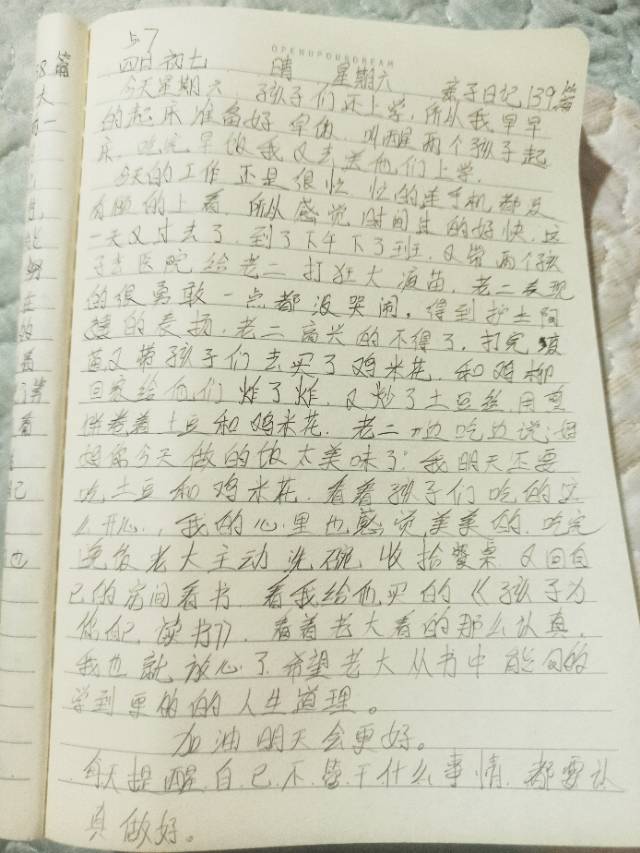 57
OPENUPOURDREAM
四月初七 晴 星期六
亲子日记139篇
今天星期六,孩子们还上学,所以我早早
的起床准备好早饭,叫醒两个孩子起
床,吃完早饭我又去送他们上学。
今天的工作还是很忙,忙的连手机都没
有顾的上看,所以感觉时间过的好快,这
一天又过去了,到了下午下了班,又带两个孩
子去医院给老二打狂犬疫苗,老二表现
的很勇敢一点都没哭闹,得到护士阿
姨的表扬,老二高兴的不得了,打完疫
苗又带孩子们去买了鸡米花,和鸡柳
回家给他们炸了炸,又炒了土豆丝,用煎
饼卷着土豆和鸡米花,老二边吃边说:妈
妈你今天做的饭太美味了,我明天还要
吃土豆和鸡米花,看着孩子们吃的这
么开心,我的心里也感觉美美的,吃完
晚饭老大主动洗碗,收拾餐桌,又回自
己的房间看书,看我给他买的《孩子为
你自己读书》,看着老大看的那么认真,
我也就放心了,希望老大从书中能够的
学到更的的人生道理。
加油明天会更好。
每天提醒自己不管干什么事情,都要认
真做好。
58篇
大
一
看
记
也